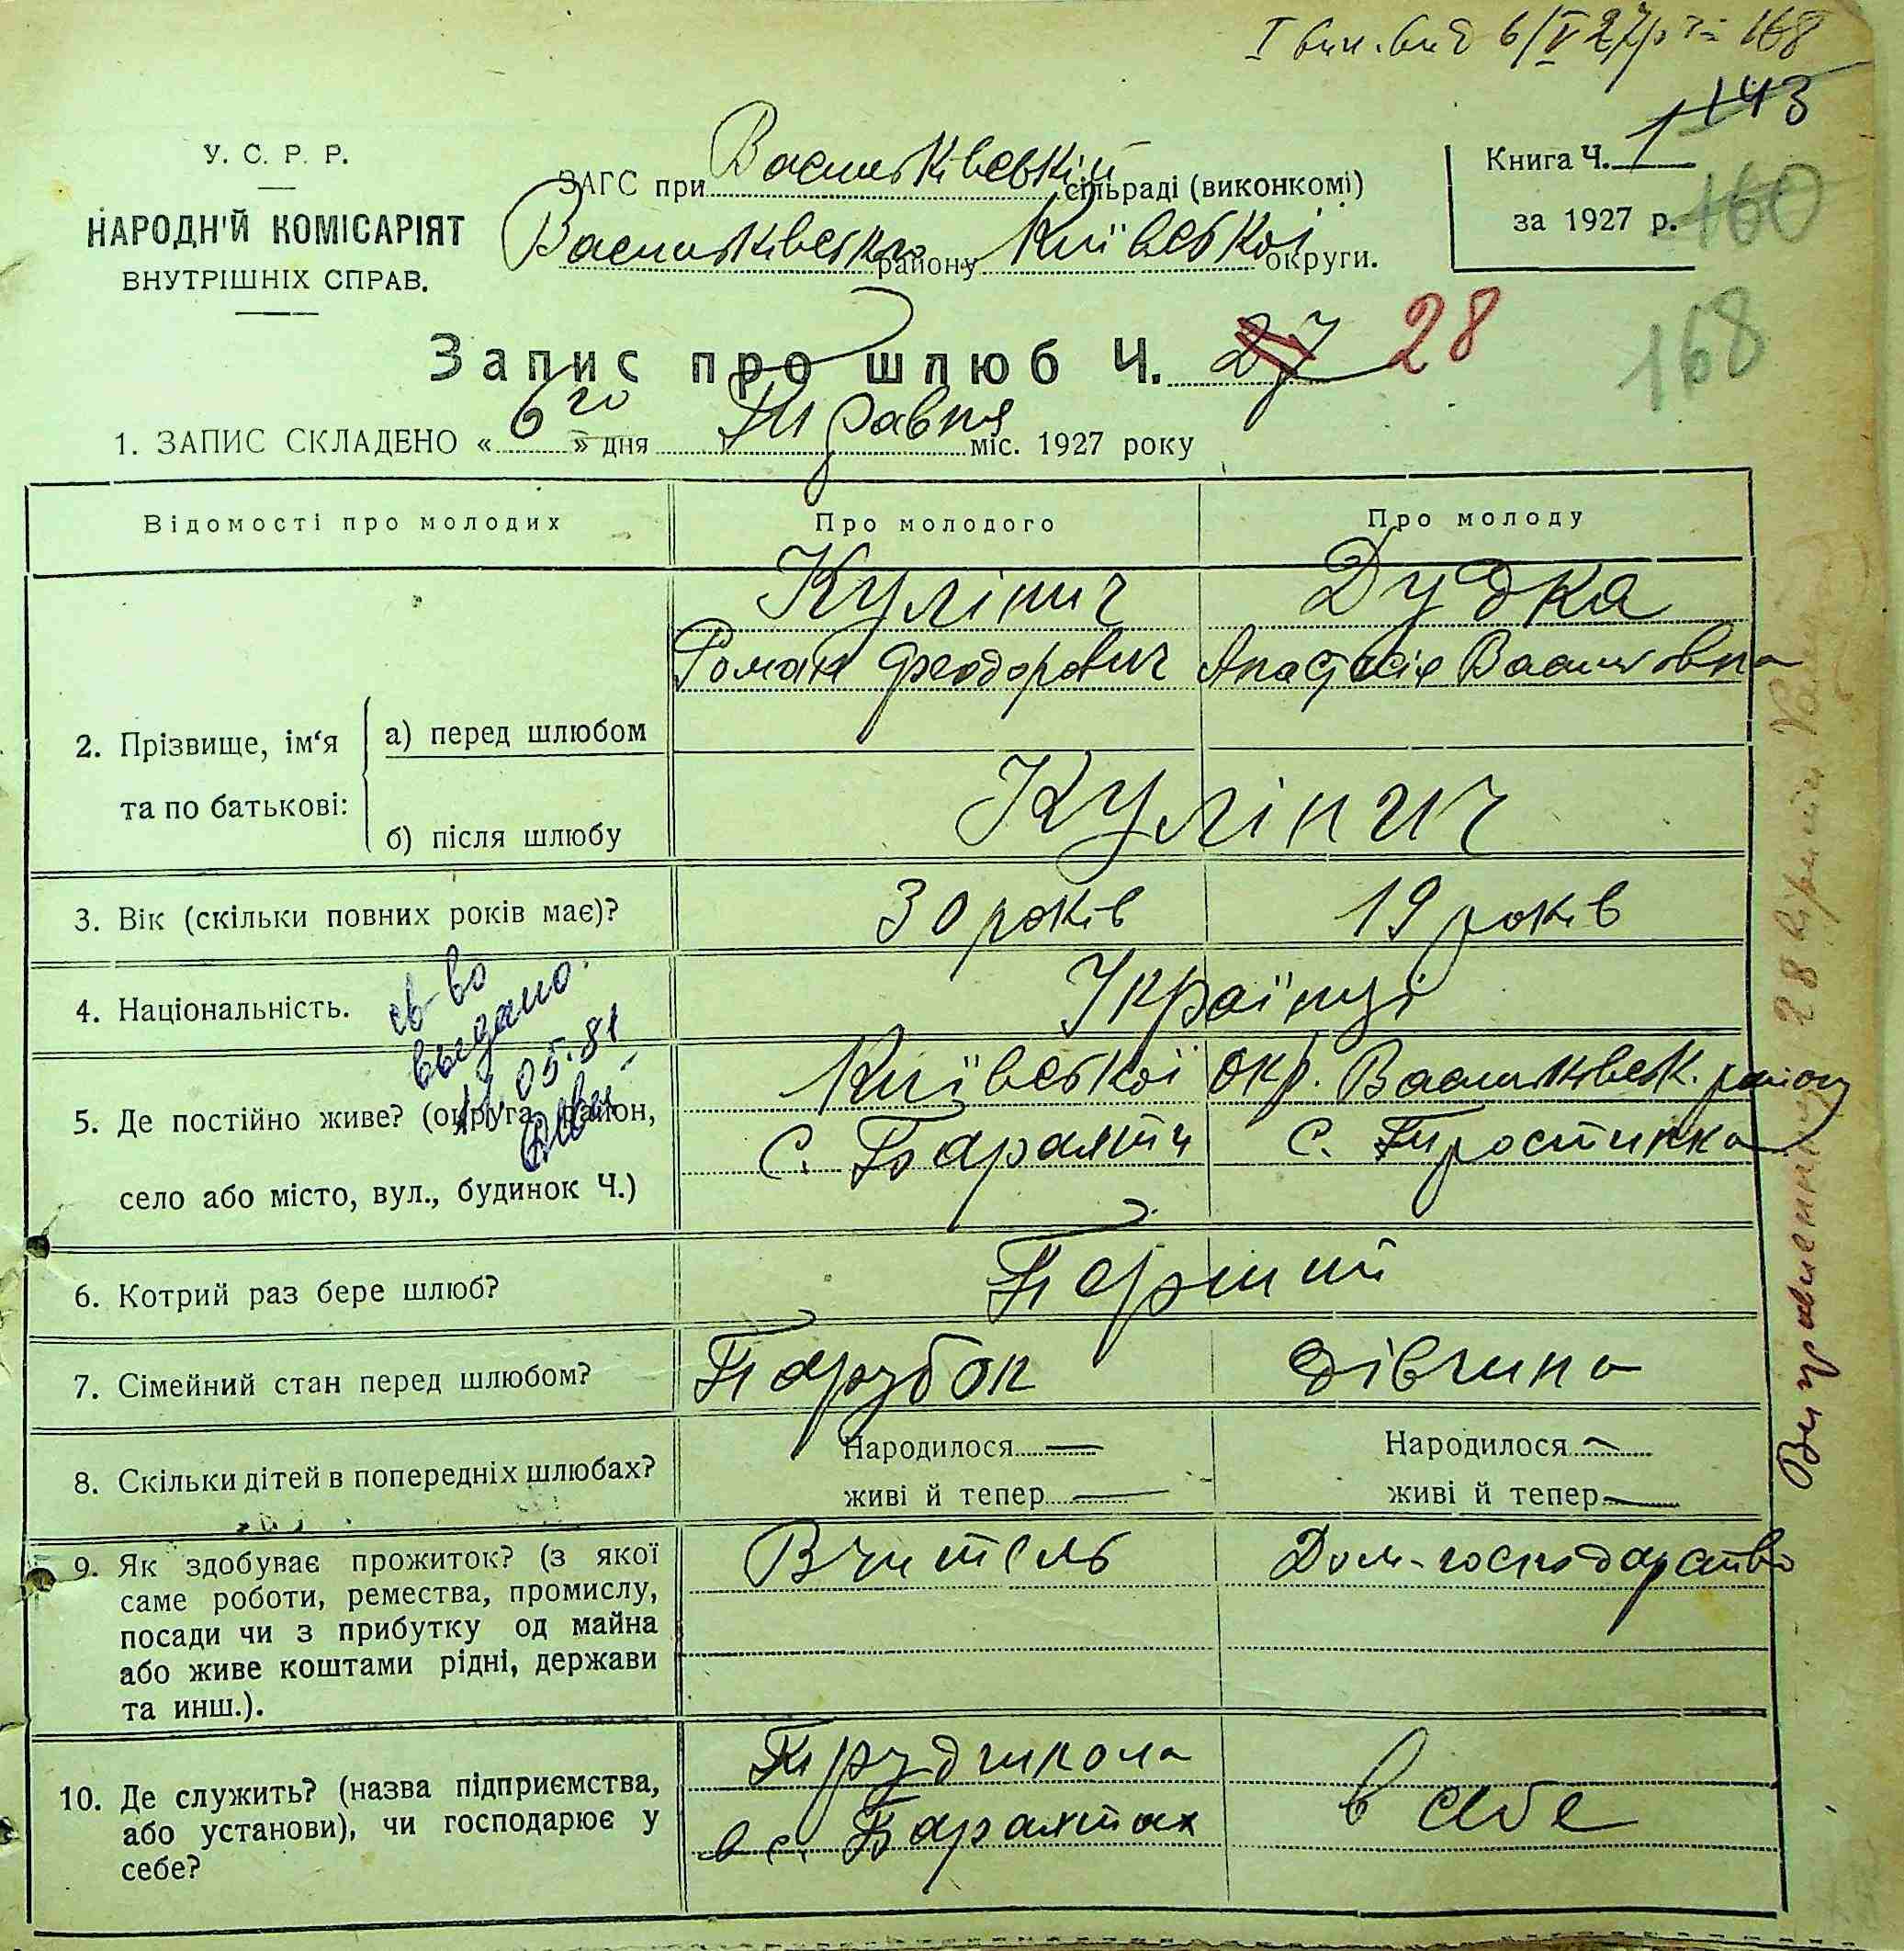 І вип. вид 6/V 27р за 168
143
У. С. Р. Р.
НАРОДНІЙ КОМІСАРІЯТ
ВНУТРІШНІХ СПРАВ.
ЗАГС при Васильківській сільраді (виконкомі)
Васильківського району Київської округи.
Книга Ч. 1
за 1927 р.
160
168
Запис про шлюб Ч. 27 28
1. ЗАПИС СКЛАДЕНО « 6го » дня Травня міс. 1927 року
Відомості про молодих
Про молодого
Про молоду
2. Прізвище, ім‘я
та по батькові:
а) перед шлюбом
Кулінич
Роман Феодорович
Дудка
Анастасія Васильовна
б) після шлюбу
Кулінич
3. Вік (скільки повних років має)?
30 років
19 років
4. Національність.
Українці
св-во
выдано
05.81
5. Де постійно живе? (округа, район,
село або місто, вул., будинок Ч.)
Київської окр. Васильківськ. району
с. Барахти
с. Тростинка
6. Котрий раз бере шлюб?
Перший
7. Сімейний стан перед шлюбом?
Парубок
дівчина
8. Скільки дітей в попередніх шлюбах?
Народилося —
живі й тепер —
Народилося —
живі й тепер —
9. Як здобуває прожиток? (з якої
саме роботи, ремества, промислу,
посади чи з прибутку од майна
або живе коштами рідні, держави
та инш.).
Вчитель
Дом-господарство
10. Де служить? (назва підприємства,
або установи), чи господарює у
себе?
Трудшкола
в с. Барахтах
в себе
Виправленному 28 вірить